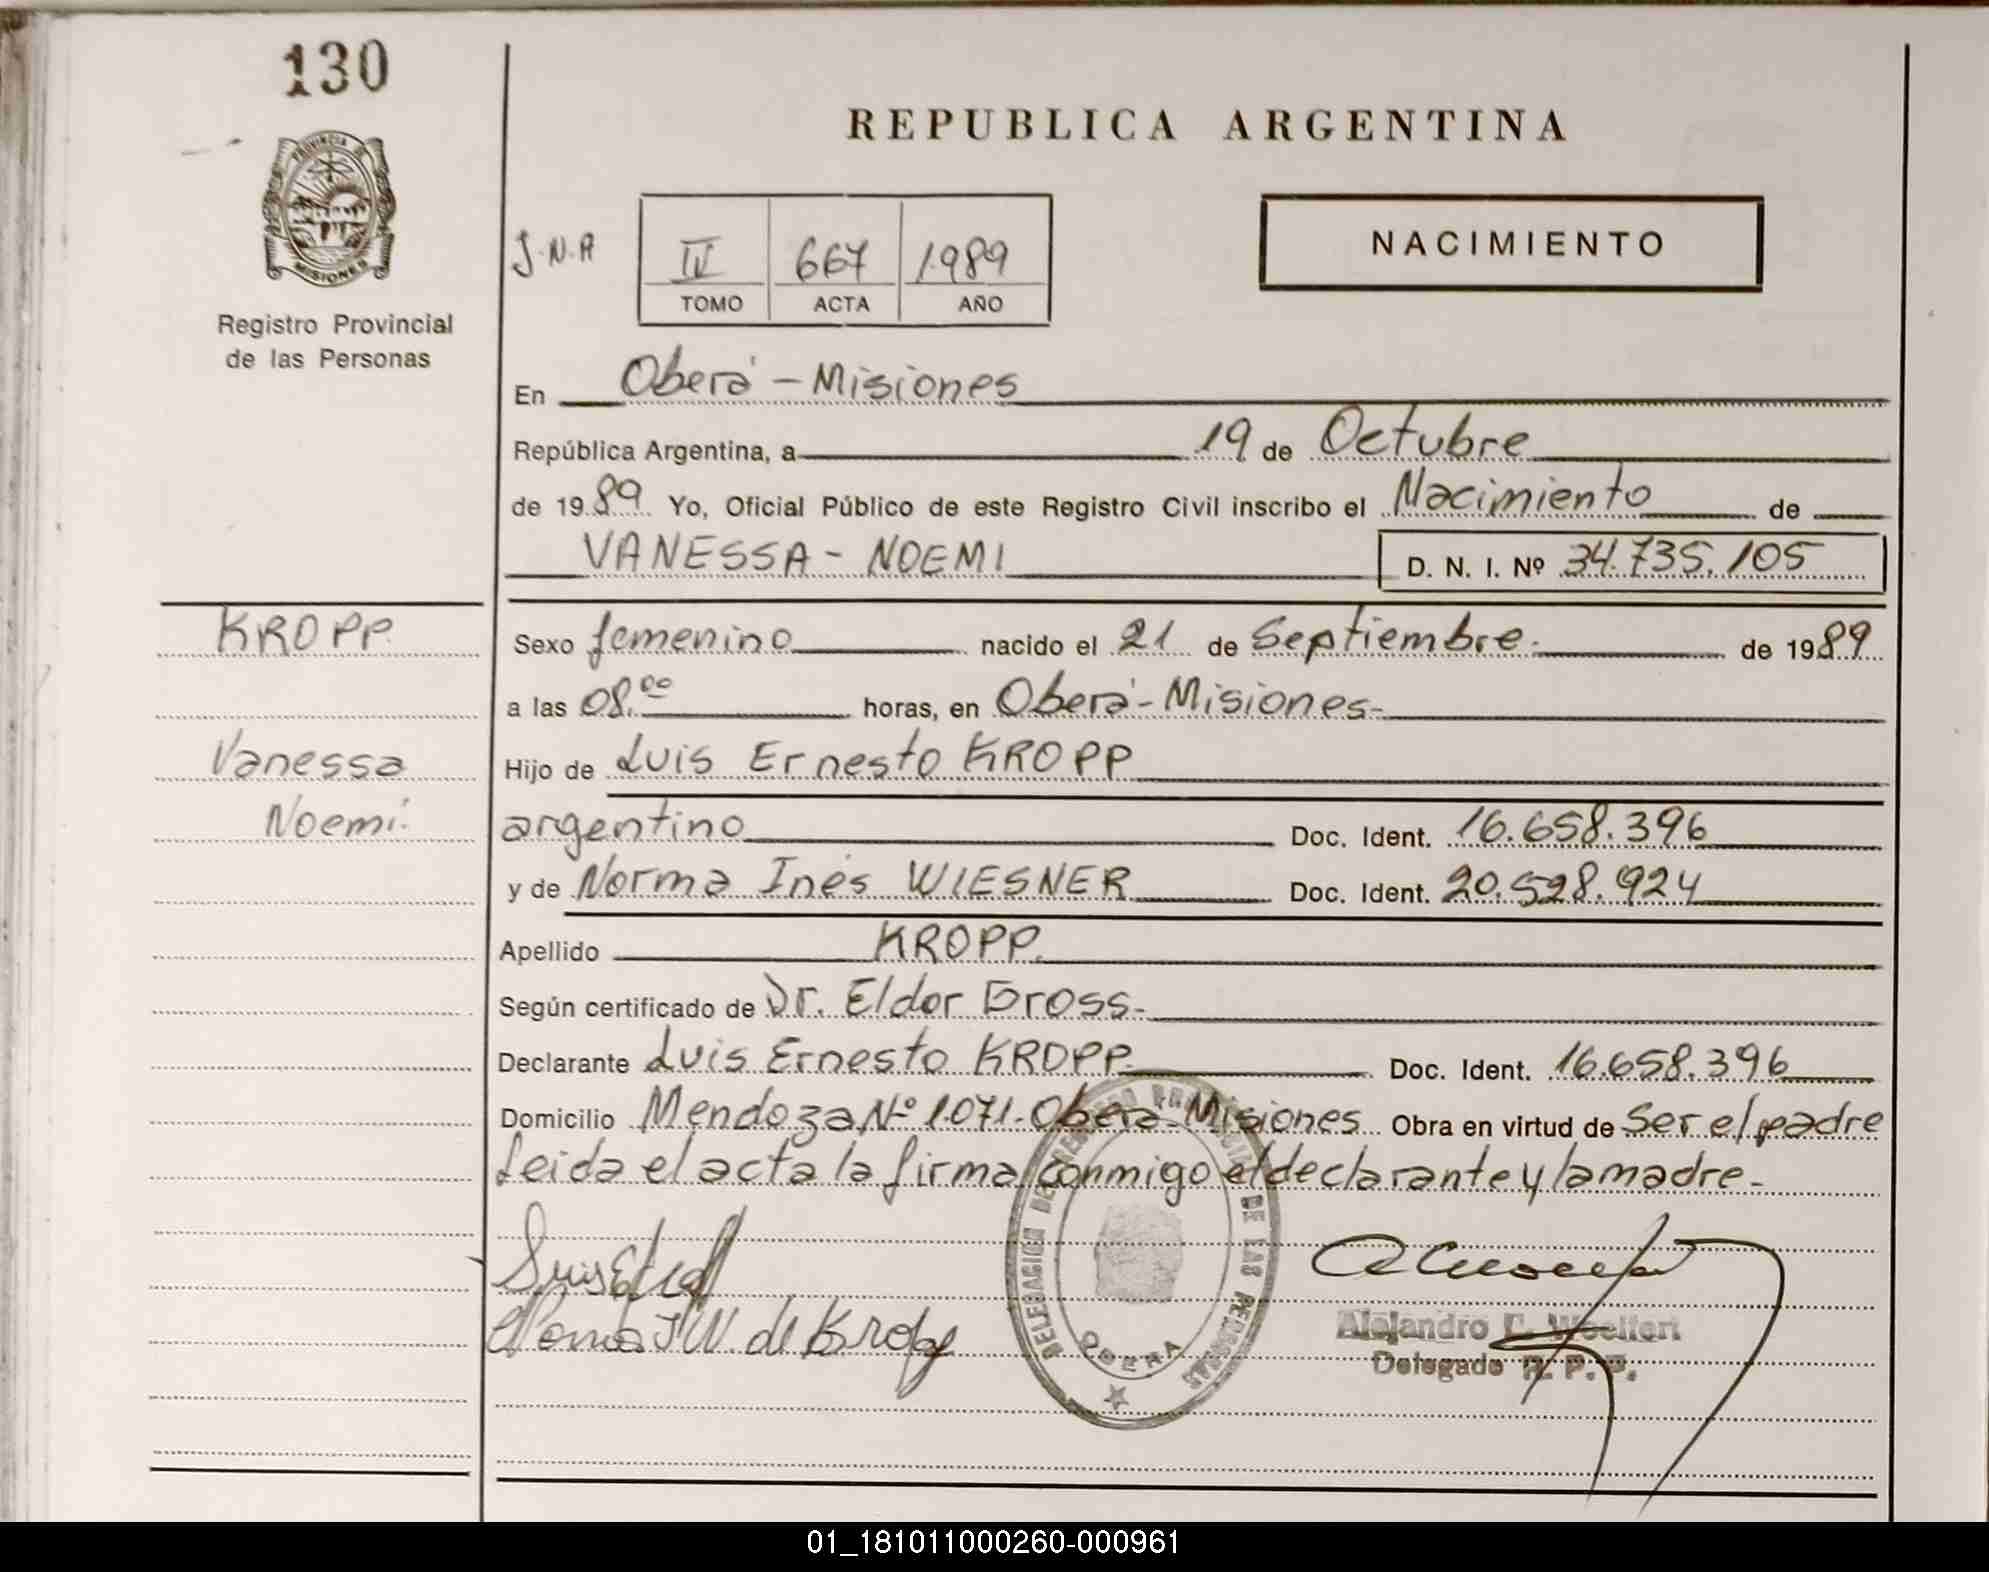 130
REPUBLICA ARGENTINA
PROVINCIA DE MISIONES
Registro Provincial
de las Personas
J.N.A
IV 667 1989
TOMO ACTA AÑO
NACIMIENTO
En Oberá - Misiones
República Argentina, a 19 de Octubre
de 1989 Yo, Oficial Público de este Registro Civil inscribo el Nacimiento de
VANESSA - NOEMI D. N. I. Nº 34.735.105
KROPP
Vanessa
Noemí.
Sexo femenino nacido el 21 de Septiembre. de 1989
a las 08.00 horas, en Oberá - Misiones-
Hijo de Luis Ernesto KROPP
argentino Doc. Ident. 16.658.396
y de Norma Inés WIESNER Doc. Ident. 20.528.924
Apellido KROPP.
Según certificado de Dr. Eldor Gross-
Declarante Luis Ernesto KROPP- Doc. Ident. 16.658.396
Domicilio Mendoza Nº 1.071-Oberá-Misiones Obra en virtud de Ser el padre
Leida el acta la firma conmigo el declarante y la madre-
Norma I W. de Kropp
DELEGACION DEL REGISTRO PROVINCIAL DE LAS PERSONAS
OBERA
Delegado R. P. P.
01_181011000260-000961